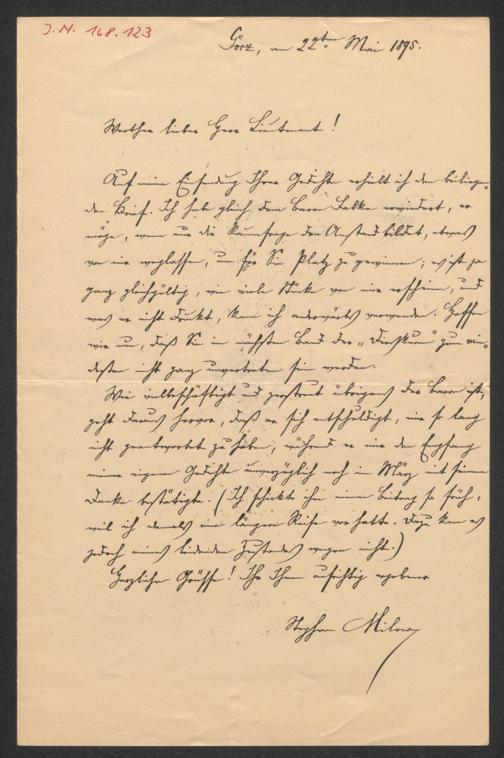 J. N. 168.123
Görz, am 22ten Mai 1895.
Werther lieber Herr Lieutenant!
Auf meine Einsendung Ihrer Gedichte erhielt ich den beiliegen-
den Brief. Ich habe gleich dem Baron Falke erwidert, er
möge, wenn nur die Raumfrage den Anstand bildet, etwas
von mir weglassen, um für Sie Platz zu gewinnen; es ist ja
ganz gleichgültig, wie viele Stücke von mir erscheinen, und
was er nicht druckt, kann ich anderwärts verwenden. Hoffen
wir nun, daß Sie im nächsten Band der "Dioskuren" zum min-
desten nicht ganz unvertreten sein werden.
Wie vielbeschäftigt und zerstreut übrigens der Baron ist,
geht daraus hervor, daß er sich entschuldigt, mir so lang
nicht geantwortet zu haben, während er mir den Empfang
meiner eigenen Gedichte unverzüglich noch im März mit seinem
Danke bestätigte. (Ich schickte ihm meinen Beitrag so früh,
weil ich damals eine längere Reise vorhatte. Dazu kam es
jedoch meines leidenden Zustandes wegen nicht.)
Herzliche Grüsse! Ihr Ihnen aufrichtig ergebener
Stephan Milow